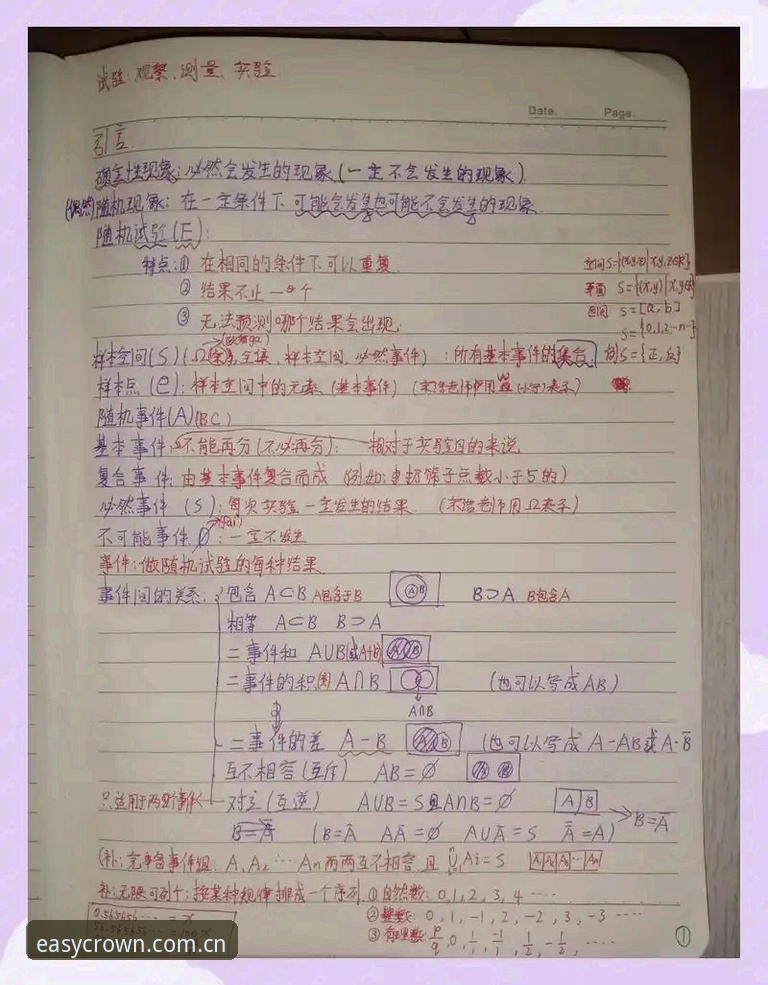 试验：观察、测量、实验
Date. Page.
引言.
确定性现象：必然会发生的现象(一定不会发生的现象).
(偶然)随机现象：在一定条件下可能会发生也可能不会发生的现象.
随机试验(E)：
特点：① 在相同的条件下可以重复.
空间 S={(x,y,z)|x,y,z∈R}
② 结果不止一个
平面 S={(x,y)|x,y∈R}
区间 S=[a,b]
③ 无法预测哪个结果会出现.
S={0,1,2…n…}
样本空间(S)(Ω 全集,样本空间,必然事件)：所有基本事件的集合. 例S={正,反}
样本点(e)：样本空间中的元素(基本事件)
随机事件(A)(BC)
基本事件：不能再分(不必再分)：相对于实验目的来说.
复合事件：由基本事件复合而成 (例如：点数小于5的)
必然事件(S)：每次实验一定发生的结果. (宋浩老师用Ω表示)
不可能事件∅：一定不发生
事件：做随机试验的每种结果
事件间的关系：包含 A⊂B A包含于B AB B⊃A B包含A
相等 A⊂B B⊃A
二事件和 A∪B(或A+B) AB
二事件的积 A∩B (也可以写成AB)
A∩B
二事件的差 A-B AB (也可以写成 A-AB或A·B̄
互不相容(互斥) AB=∅ A B
只适用于两个事件 对立(互逆) A∪B=S且A∩B=∅ A|B B=Ā
B=Ā (B=Ā AĀ=∅ A∪Ā=S A̿=A)
(补：完备事件组. A₁A₂…An两两互不相容且 ⋃ⁿAi=S A₁|A₂|A₃|…|An
补：无限可列个：按某种规律排成一个序列 ① 自然数：0,1,2,3,4……
0.565656…=x
② 整数：0,1,-1,2,-2,3,-3……
56.565656…=100x
③ 有理数 p/q:0,1/1,-1/1,1/2,-1/2,……
①
easycrown.com.cn